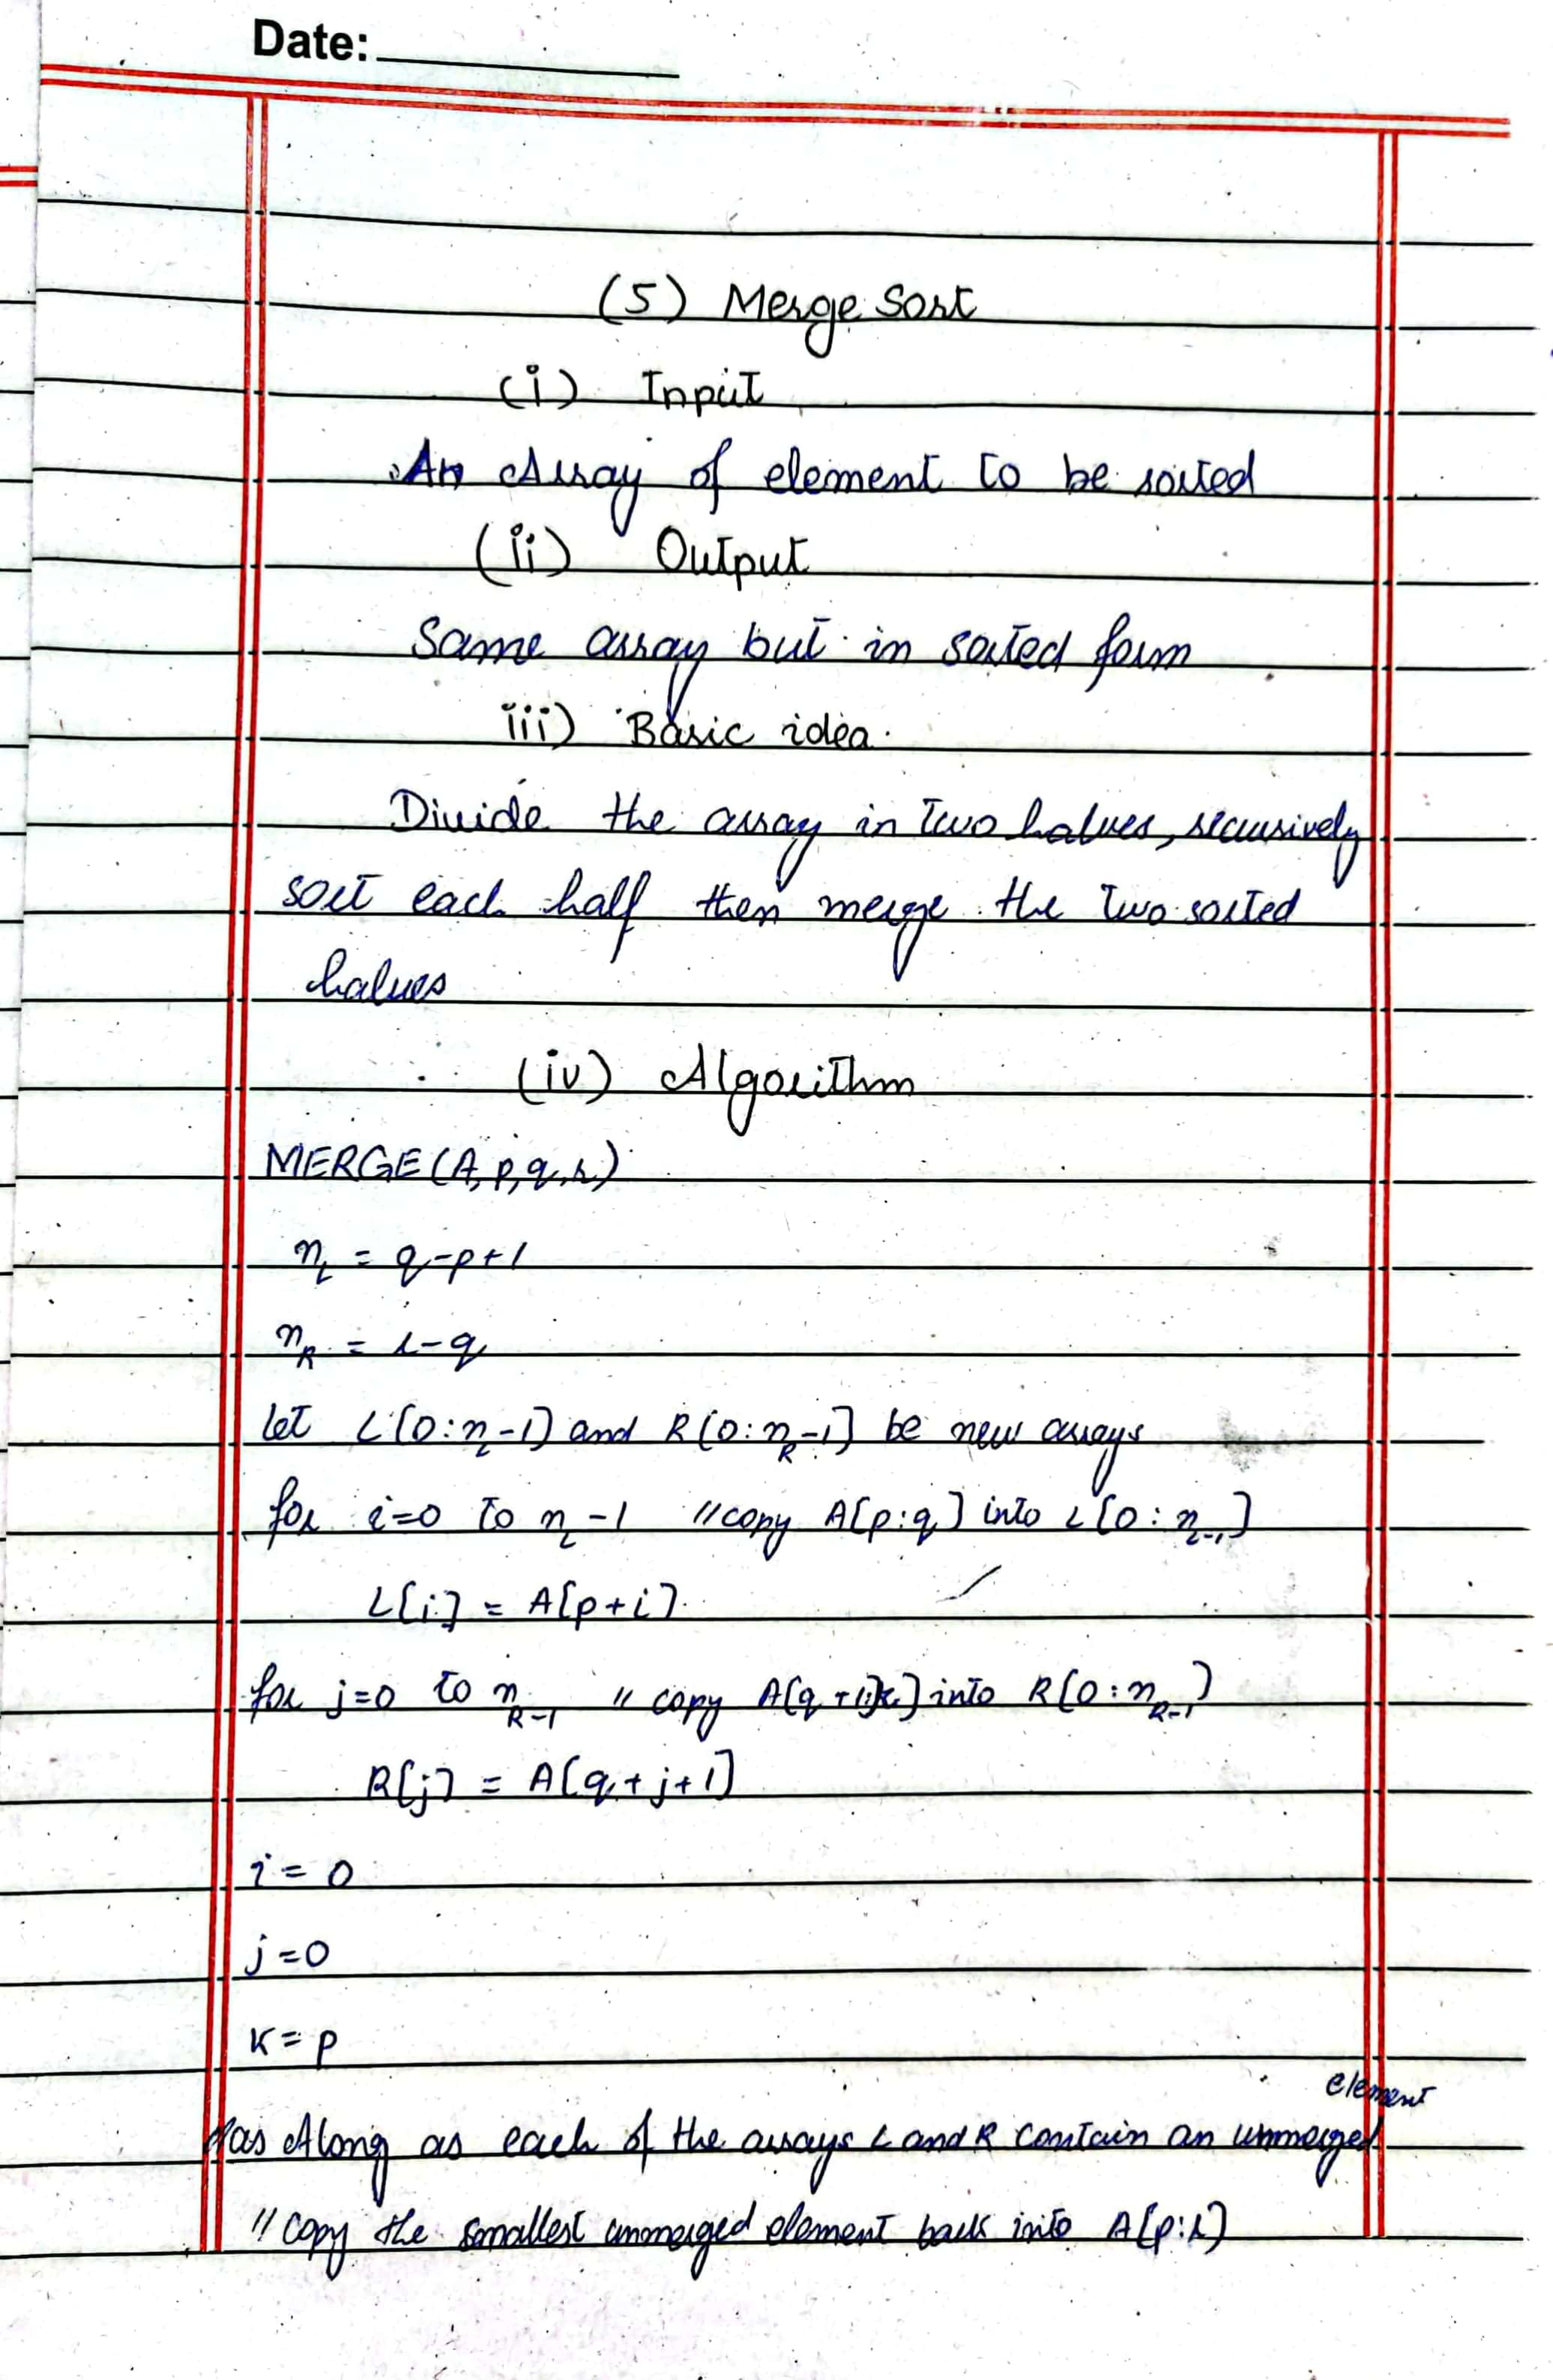 Date:
(5) Merge Sort
(i) Input
An Array of element to be sorted
(ii) Output
Same array but in sorted form
iii) Basic idea.
Divide the array in two halves, recursively
sort each half then merge the two sorted
halves
(iv) Algorithm
MERGE(A,p,q,r)
n_L = q-p+1
n_R = r-q
let L[0:n_L-1] and R[0:n_R-1] be new arrays
for i=0 to n_L-1 //copy A[p:q] into L[0:n_L-1]
L[i] = A[p+i]
for j=0 to n_R-1 // copy A[q+1:r] into R[0:n_R-1]
R[j] = A[q+j+1]
i = 0
j=0
K=p
element
//as Along as each of the arrays L and R contain an unmerged
// copy the smallest unmerged element back into A[p:r]